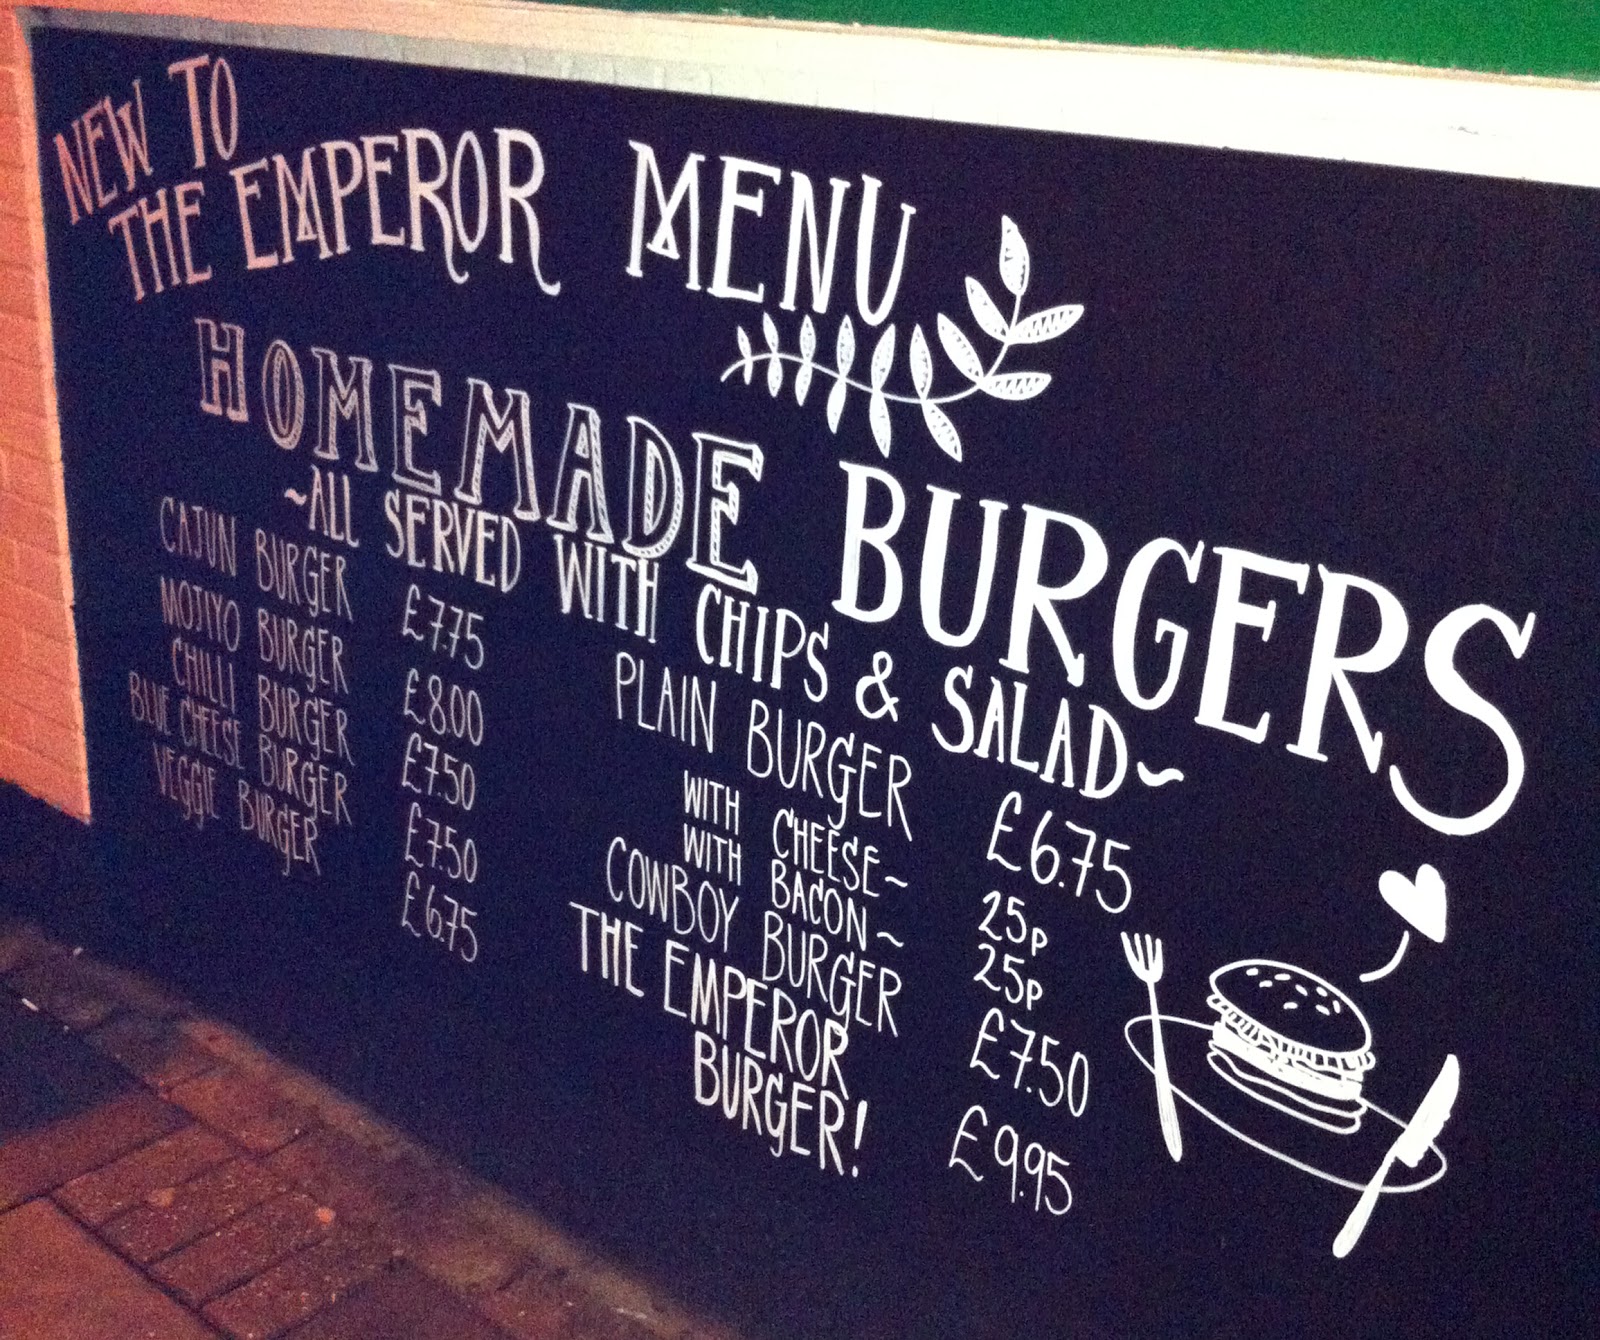 NEW TO
THE EMPEROR MENU
HOMEMADE BURGERS
~ALL SERVED WITH CHIPS & SALAD~
CAJUN BURGER £7.75
MOJIYO BURGER £8.00
CHILLI BURGER £7.50
BLUE CHEESE BURGER £7.50
VEGGIE BURGER £6.75
PLAIN BURGER £6.75
WITH CHEESE~ 25p
WITH BACON~ 25p
COWBOY BURGER £7.50
THE EMPEROR
BURGER! £9.95